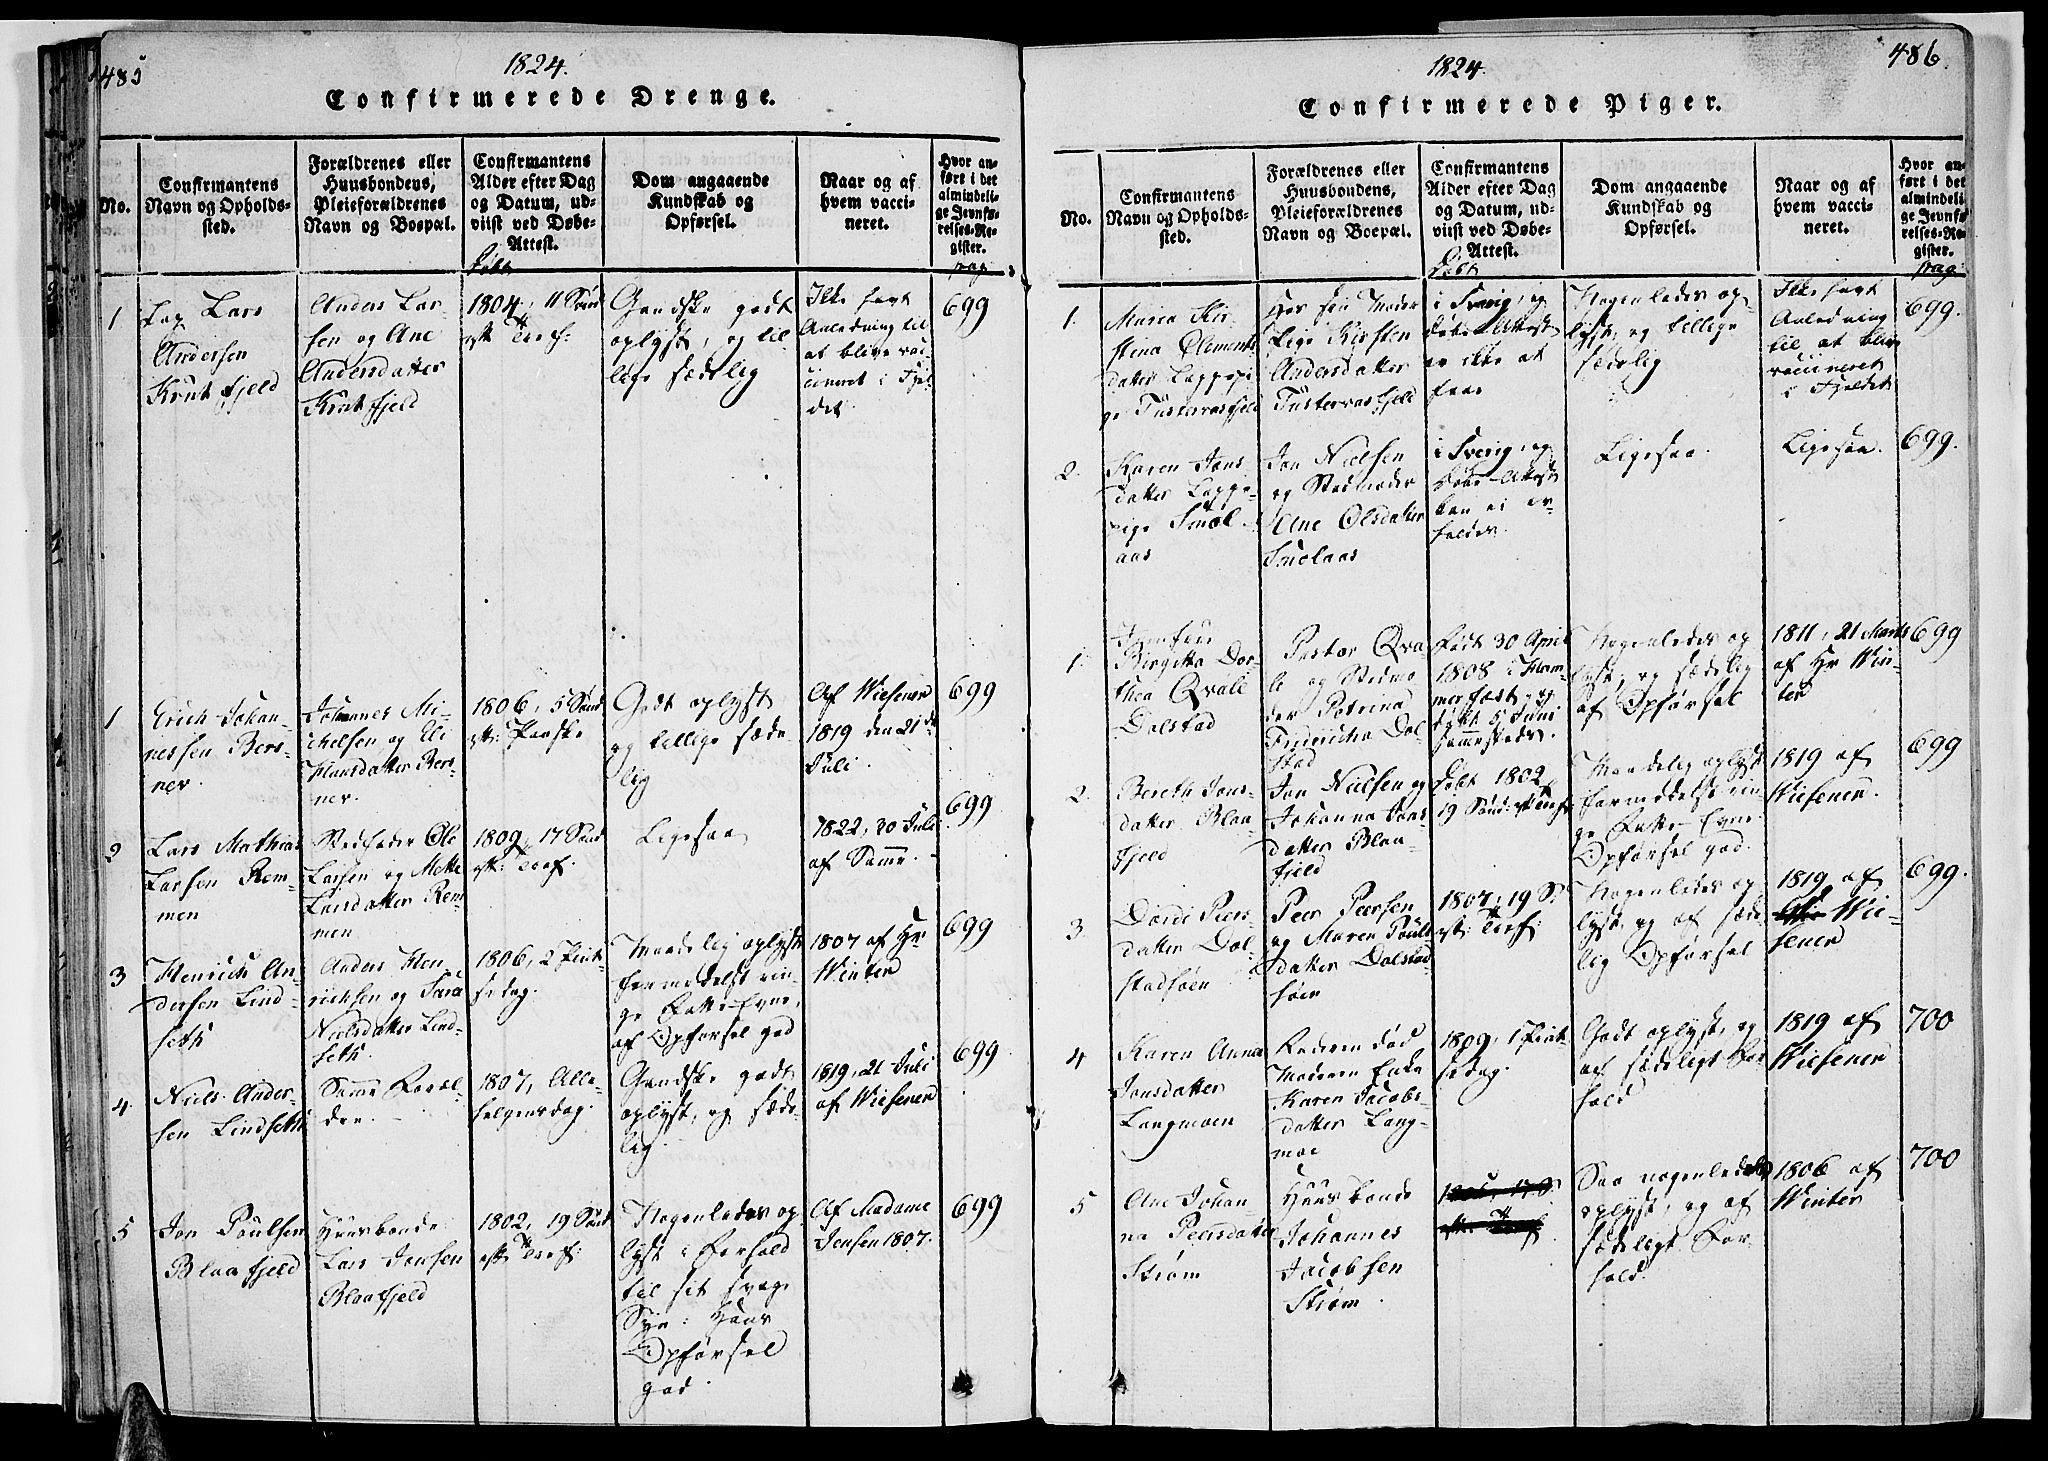 485
1824.
Confirmerede Drenge.
No.
Confirmantens
Navn og Opholds-
sted.
Forældrenes eller
Huusbondens,
Pleieforældrenes
Navn og Boepæl.
Confirmantens
Alder efter Dag
og Datum, ud-
viist ved Døbe-
Attest.
Døbt
Dom angaaende
Kundskab og
Opførsel.
Naar og af
hvem vacci-
neret.
Hvor an-
ført i det
almindeli-
ge Jevnfø-
relses-Re-
gister.
pag:
1
Lap Lars
Andersen
Krutfjeld
Anders Lar-
sen og Ane
Andersdatter
Krutfjeld
1804, 11 Sønd
est: Tref:
Gandske godt
oplyst, og til-
lige sædelig
Ikke havt
Anledning til
at blive vac-
cineret i Fjel-
det.
699
1
Erich Johan-
nessen Bers-
ner.
Johannes Mi-
chelsen og Eli
Hansdatter Bers-
ner.
1806, 5 Sønd
est: Paaske
Godt oplyst
og tillige sæde-
lig
Af Wiesener
1819 den 21de
Juli.
699
2
Lars Mathias
Larsen Rem-
men
Stedfader Ole
Larsen og Mette
Larsdatter Rem-
men
1809, 17 Sønd
est: Tref:
Ligesaa
1822, 30 Juli
af Samme.
699
3
Henrich An-
dersen Lind-
seth
Anders Hen-
richsen og Sara
Nielsdatter Lind-
seth.
1806, 2 Pint-
sedag.
Maadelig oplyst
formedelst rin-
ge Fatte-Evne,
af Opførsel god
1807 af Hr
Winter
699
4.
Niels Ander-
sen Lindseth
Samme Foræl-
dre.
1807, Alle-
helgensdag.
Gandske godt
oplyst, og sæde-
lig.
1819, 21 Juli
af Wiesener
699
5
Jon Poulsen
Blaafjeld
Huusbonde
Lars Jonsen
Blaafjeld
1802, 19 Sønd
est: Tref:
Nogenledes op-
lyst i Forhold
til sit svage
Syn: Hans
Opførsel
god.
Af Madame
Jensen 1807.
699
486.
1824.
Confirmerede Piger.
No.
Confirmantens
Navn og Opholds-
sted.
Forældrenes eller
Huusbondens,
Pleieforældrenes
Navn og Boepæl.
Confirmantens
Alder efter Dag
og Datum, ud-
viist ved Døbe-
Attest.
Døbt
Dom angaaende
Kundskab og
Opførsel.
Naar og af
hvem vacci-
neret.
Hvor an-
ført i det
almindeli-
ge Jevnfø-
relses-Re-
gister.
pag:
1.
Maria Kir-
stina Clements
datter Lappepi-
ge Tustervasfjeld
Hos sin Moder
Pige Kirsten
Andersdatter
Tustervasfjeld
i Sverig, og
Døbe-Attest
er ikke at
faae
Nogenledes op-
lyst, og tillige
sædelig
Ikke havt
Anledning
til at blive
vaccineret
i Fjeldet
699.
2.
Karen Jons-
datter Lappe-
pige Smol-
aas
Jon Nielsen
og Stedmoder
Ane Olsdatter
Smolaas
i Sverig, og
Døbe-Attest
kan ei er-
holdes.
Ligesaa.
Ligesaa.
699.
1.
Jomfrue
Birgitta Dor-
thea Qvale
Dolstad
Pastor Qva-
le og Stedmo-
der Petrina
Fridericha Dol-
stad
Født 30 April
1808 i Ham-
merfest, og
døbt 5 Juni
sammesteds.
Nogenledes op-
lyst, og sædelig
af Opførsel
1811, 21 Marts
af Hr Win-
ter
699
2.
Bereth Jons-
datter Blaa-
fjeld
Jon Nielsen og
Johanna Jons-
datter Blaa-
fjeld
Døbt 1802,
19 Sønd: est Tref:
Maadelig oplyst
formedelst rin-
ge Fatte-Evne.
Opførsel god.
1819 af
Wiesener.
699
3.
Dordi Peers-
datter Dol-
stadsøen
Peer Peersen
og Maren Pouls-
datter Dolstad-
søen
1807, 19 S:
est: Tref:
Nogenledes op-
lyst, og af sæde-
lig Opførsel
1819 af
Wie-
sener
699.
4
Karen Anna
Jonsdatter
Langmoen
Faderen død
Moderen Enke
Karen Jacobs-
datter Lang-
moe
1809, 1 Pint-
sedag.
Godt oplyst, og
af sædeligt For-
hold
1819 af
Wiesener
700
5
Ane Johan-
na Peersdatter
Strøm
Huusbonde
Johannes
Jacobsen
Strøm.
Saa nogenledes
oplyst, og af
sædeligt For-
hold.
1806 af
Winter
700